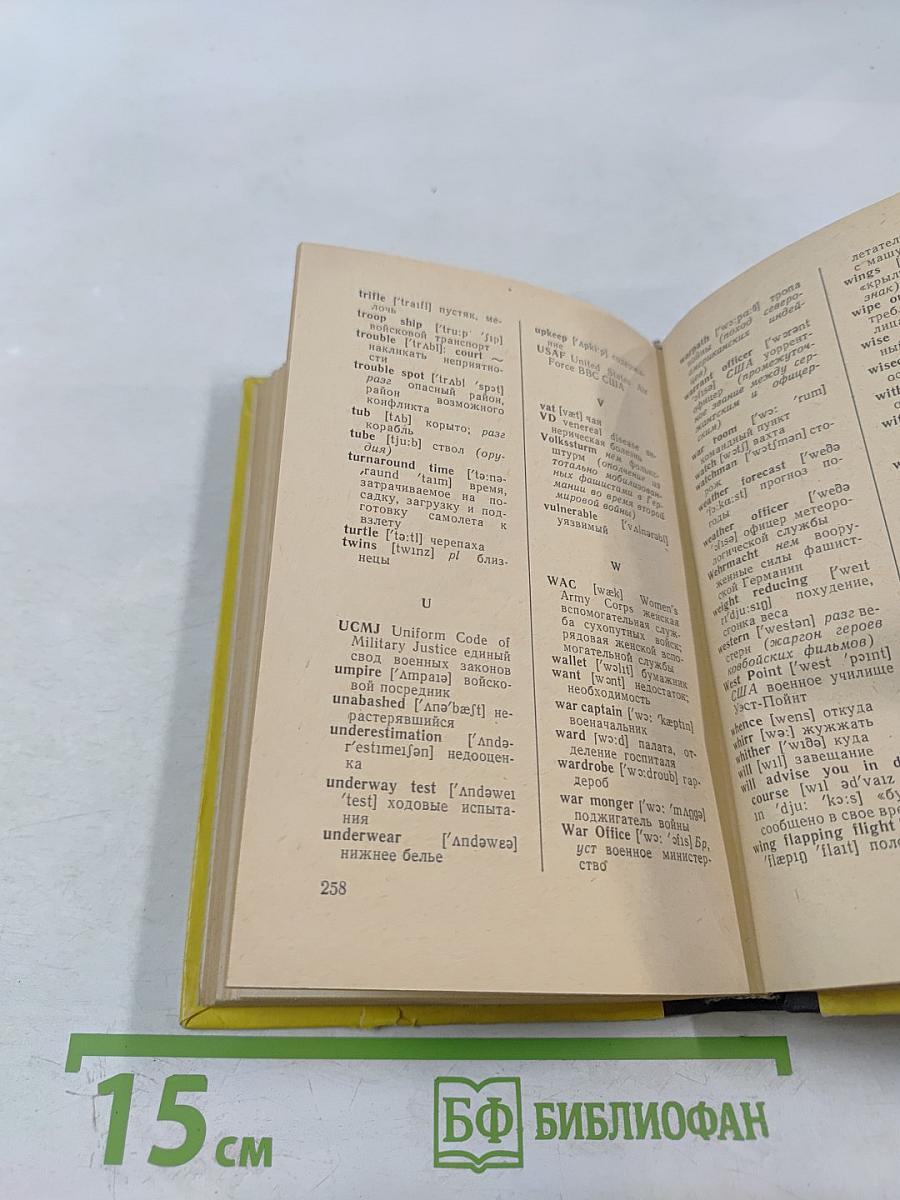 trifle ['traıfl] пустяк, ме-
лочь
troop ship ['tru:p' 'ʃıp]
войсковой транспорт
trouble ['trʌbl]; court ~
накликать неприятно-
сти
trouble spot ['trʌbl 'spɔt]
разг опасный район,
район возможного
конфликта
tub [tʌb] корыто; разг
корабль
tube [tju:b] ствол (ору-
дия)
turnaround time ['tə:nə-
,raund 'taım] время,
затрачиваемое на по-
садку, загрузку и под-
готовку самолета к
взлету
turtle ['tə:tl] черепаха
twins [twınz] pl близ-
нецы
U
UCMJ Uniform Code of
Military Justice единый
свод военных законов
umpire ['ʌmpaıə] войско-
вой посредник
unabashed ['ʌnə'bæʃt] не-
растерявшийся
underestimation ['ʌndə-
r'estımeıʃən] недооцен-
ка
underway test ['ʌndəweı
'test] ходовые испыта-
ния
underwear ['ʌndəwɛə]
нижнее белье
258
upkeep ['ʌpki:p]
ние
USAF United States Air
Force ВВС США
V
vat [væt] чан
VD venereal disease ве-
нерическая болезнь
Volkssturm нем фолькс-
штурм (ополчение из
тотально мобилизован-
ных фашистами в Гер-
мании во время второй
мировой войны)
vulnerable ['vʌlnərəbl]
уязвимый
W
WAC [wæk] Women's
Army Corps женская
вспомогательная служ-
ба сухопутных войск;
рядовая женской вспо-
могательной службы
wallet ['wɔlıt] бумажник
want [wɔnt] недостаток,
необходимость
war captain ['wɔ: 'kæptın]
военачальник
ward [wɔ:d] палата, от-
деление госпиталя
wardrobe ['wɔ:droub] гар-
дероб
war monger ['wɔ: 'mʌŋgə]
поджигатель войны
War Office ['wɔ: 'ɔfıs] Бр,
уст военное министер-
ство
warpath ['wɔ:pɑ:θ] тропа
войны (поход северо-
американских индей-
цев)
warrant officer ['wɔrənt
'ɔfısə] США уоррент-
офицер (промежуточ-
ное звание между сер-
жантским и офицер-
ским)
war room ['wɔ: 'rum]
командный пункт
watch [wɔtʃ] вахта
watchman ['wɔtʃmən] сто-
рож
weather forecast ['weðə
'fɔ:kɑ:st] прогноз по-
годы
weather officer ['weðə
'ɔfısə] офицер метеоро-
логической службы
Wehrmacht нем воору-
женные силы фашист-
ской Германии
weight reducing ['weıt
rı'dju:sıŋ] похудение,
сгонка веса
western ['westən] разг ве-
стерн (жаргон героев
ковбойских фильмов)
West Point ['west 'pɔınt]
США военное училище
Уэст-Пойнт
whence [wens] откуда
whirr [wə:] жужжать
whither ['wıðə] куда
will [wıl] завещание
will advise you in d
course [wıl əd'vaız
ın 'dju: 'kɔ:s] «бу
сообщено в свое вре
wing flapping flight
'flæpıŋ 'flaıt] поле
летател
с машу
wings [
«крыл
знак)
wipe ou
треб
лица
wise
ны
wised
ос
with
wit
w
15 см
БФ БИБЛИОФАН